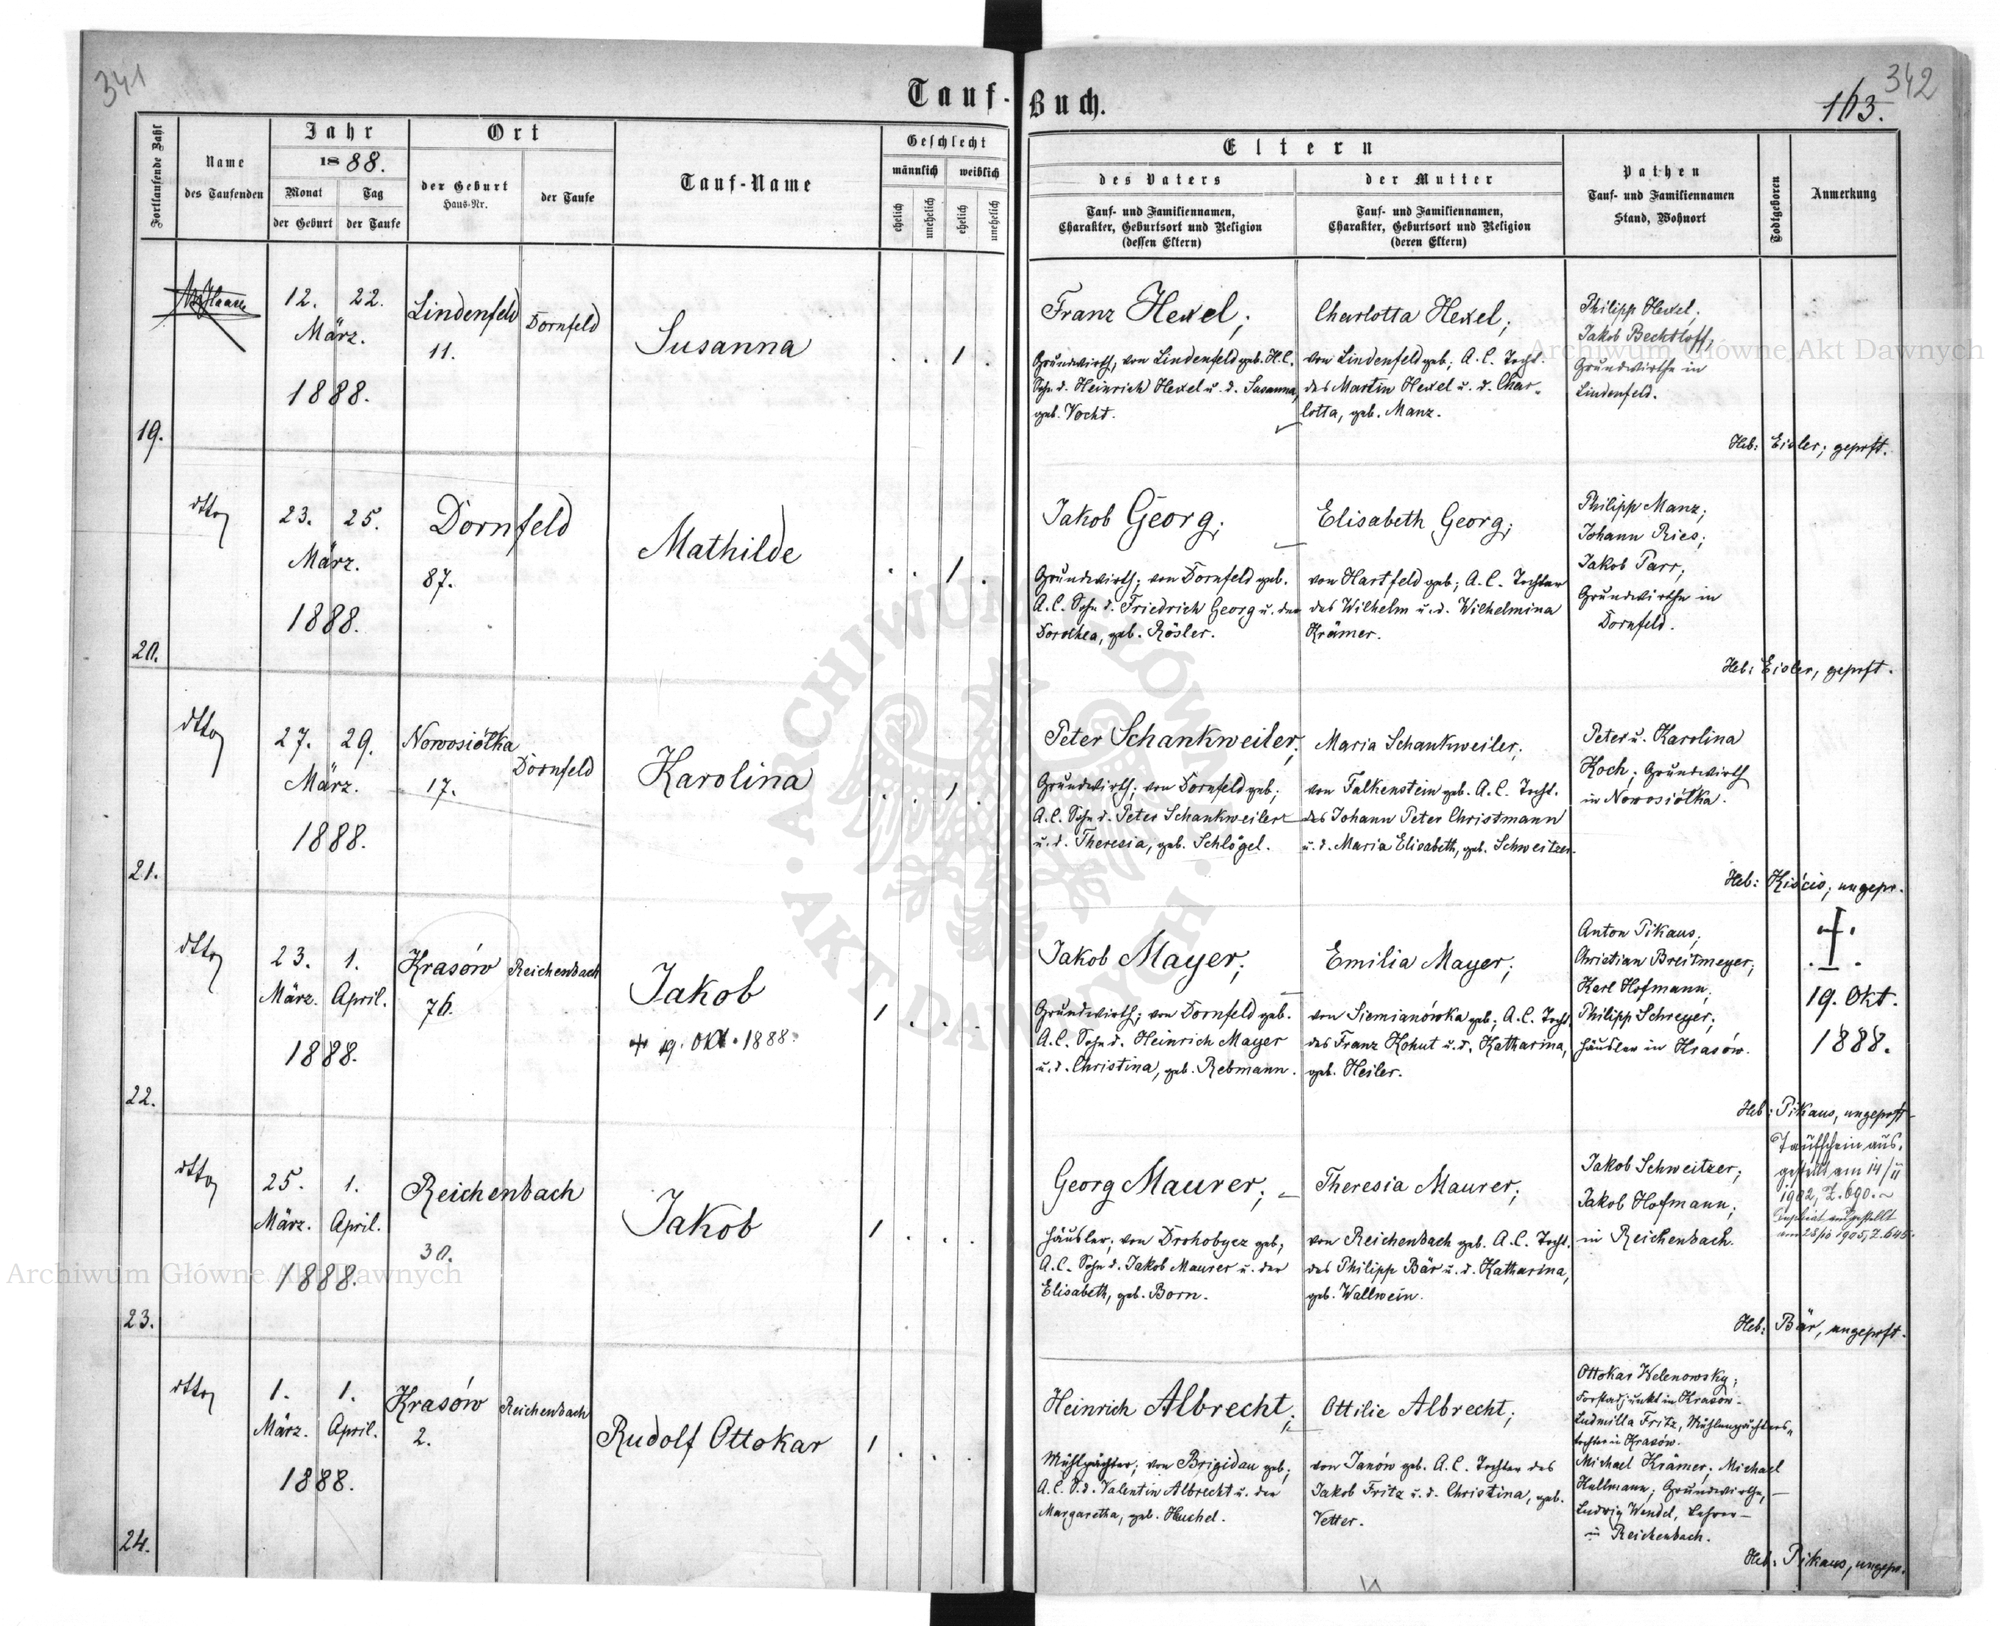 341
342
Tauf-Buch.
163.
Fortlaufende Zahl
Name
des Taufenden
Jahr
1888.
Monat
der Geburt
Tag
der Taufe
Ort
der Geburt
Haus-Nr.
der Taufe
Tauf-Name
Geschlecht
männlich
weiblich
ehelich
unehelich
ehelich
unehelich
Eltern
des Vaters
Tauf- und Familiennamen,
Charakter, Geburtsort und Religion
(dessen Eltern)
der Mutter
Tauf- und Familiennamen,
Charakter, Geburtsort und Religion
(deren Eltern)
Pathen
Tauf- und Familiennamen
Stand, Wohnort
Todtgeboren
Anmerkung
19.
12.
22.
März.
1888.
Lindenfeld
11.
Dornfeld
Susanna
1
Franz Hexel;
Grundwirth, von Lindenfeld geb. H.C.
Sohn d. Heinrich Hexel u. d. Susanna,
geb. Vocht.
Charlotta Hexel;
von Lindenfeld geb; A.C. Tocht.
des Martin Hexel u. d. Char-
lotta, geb. Manz.
Philipp Hexel;
Jakob Bechtloff,
Grundwirthe in
Lindenfeld.
Heb: Eisler; geprft.
20.
dtto
23.
25.
März.
1888.
Dornfeld
87.
Mathilde
1
Jakob Georg;
Grundwirth; von Dornfeld geb.
A.C. Sohn d. Friedrich Georg u. der
Dorothea, geb. Rösler.
Elisabeth Georg;
von Hartfeld geb; A.C. Tochter
des Wilhelm u. d. Wilhelmina
Krämer.
Philipp Manz;
Johann Ries;
Jakob Parr;
Grundwirthe in
Dornfeld.
Heb: Eisler, geprft.
21.
dtto
27.
29.
März.
1888.
Nowosiółka
17.
Dornfeld
Karolina
1
Peter Schankweiler;
Grundwirth; von Dornfeld geb;
A.C. Sohn d. Peter Schankweiler
u. d. Theresia, geb. Schlögel.
Maria Schankweiler;
von Falkenstein geb. A.C. Tocht.
des Johann Peter Christmann
u. d. Maria Elisabeth, geb. Schweitzer.
Peter u. Karolina
Koch; Grundwirth
in Nowosiółka.
Heb: Kiścis; ungepr.
22.
dtto
23.
1.
März.
April.
1888.
Krasów
76.
Reichenbach
Jakob
19. Okt. 1888.
1
Jakob Mayer;
Grundwirth; von Dornfeld geb.
A.C. Sohn d. Heinrich Mayer
u. d. Christina, geb. Rebmann.
Emilia Mayer;
von Siemianówka geb; A.C. Tocht.
des Franz Kohut u. d. Katharina,
geb. Heiler.
Anton Pikaus;
Christian Breitmeyer;
Karl Hofmann;
Philipp Schreyer;
Häusler in Krasów.
19. Okt.
1888.
Heb: Pikaus, ungeprft
23.
dtto
25.
1.
März.
April.
1888.
Reichenbach
30.
Jakob
1
Georg Maurer;
Häusler; von Drohobycz geb;
A.C. Sohn d. Jakob Maurer u. der
Elisabeth, geb. Born.
Theresia Maurer;
von Reichenbach geb. A.C. Tocht.
des Philipp Bär u. d. Katharina,
geb. Wallwein.
Jakob Schweitzer;
Jakob Hofmann;
in Reichenbach.
Taufschein aus-
gestellt am 14/II
1902, Z. 690.
Heb: Bär, ungeprft.
24.
dtto
1.
1.
März.
April.
1888.
Krasów
2.
Reichenbach
Rudolf Ottokar
1
Heinrich Albrecht;
Mühlpächter; von Brigidau geb;
A.C. S. d. Valentin Albrecht u. der
Margaretha, geb. Huchel.
Ottilie Albrecht;
von Janów geb. A.C. Tochter des
Jakob Fritz u. d. Christina, geb.
Vetter.
Ottokar Welenowsky;
Forstadjunkt in Krasów.
Ludmilla Fritz, Mühlenpächters-
tochter in Krasów.
Michael Krämer; Michael
Kullmann; Grundwirthe,
Ludwig Wendel, Lehrer
in Reichenbach.
Heb: Pikaus, ungepr.
Archiwum Główne Akt Dawnych
Archiwum Główne Akt Dawnych
ARCHIWUM GŁÓWNE AKT DAWNYCH